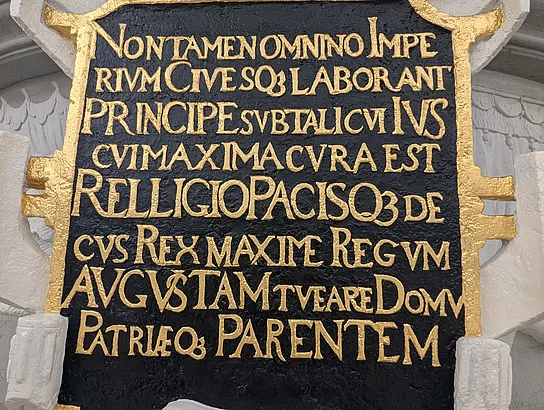 NON TAMEN OMNINO IMPE
RIVM CIVESQꝫ LABORANT
PRINCIPE SVB TALI CVI IVS
CVI MAXIMA CVRA EST
RELLIGIO PACISQꝫ DE
CVS REX MAXIME REGVM
AVGVSTAM TVEARE DOMV
PATRIÆQꝫ PARENTEM